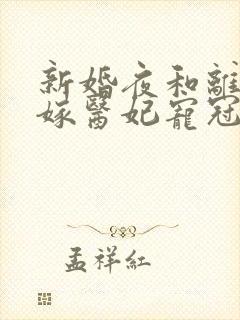 新婚夜和離
嫁醫妃寵冠
孟祥紅